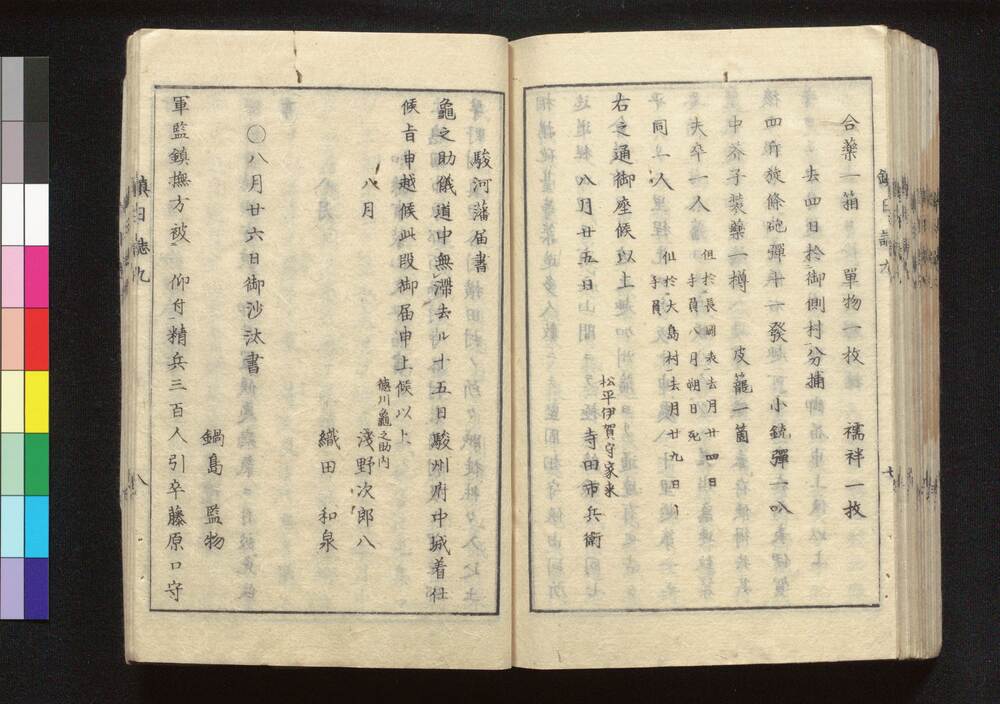 合藥一箱　單物一枚　襦袢一枚
去四日於御側村分捕
四斤旋條砲彈十六發　小銃彈一叺
中芥子裝藥一樽　皮籠一箇
夫卒一人　但於長岡表去月廿四日
手負月朔日死
同一人　但於大島村去月廿九日
手負
右之通御座候以上
八月廿五日
松平伊賀守家来
寺田市兵衛
駿河藩届書
龜之助儀道中無滞去ル十五日駿州府中城着仕
候旨申越候此段御届申上候以上
八月
德川龜之助内
淺野次郎八
織田和泉
〇八月廿六日御沙汰書
鍋島監物
軍監鎮撫方被　仰付精兵三百人引卒藤原口守